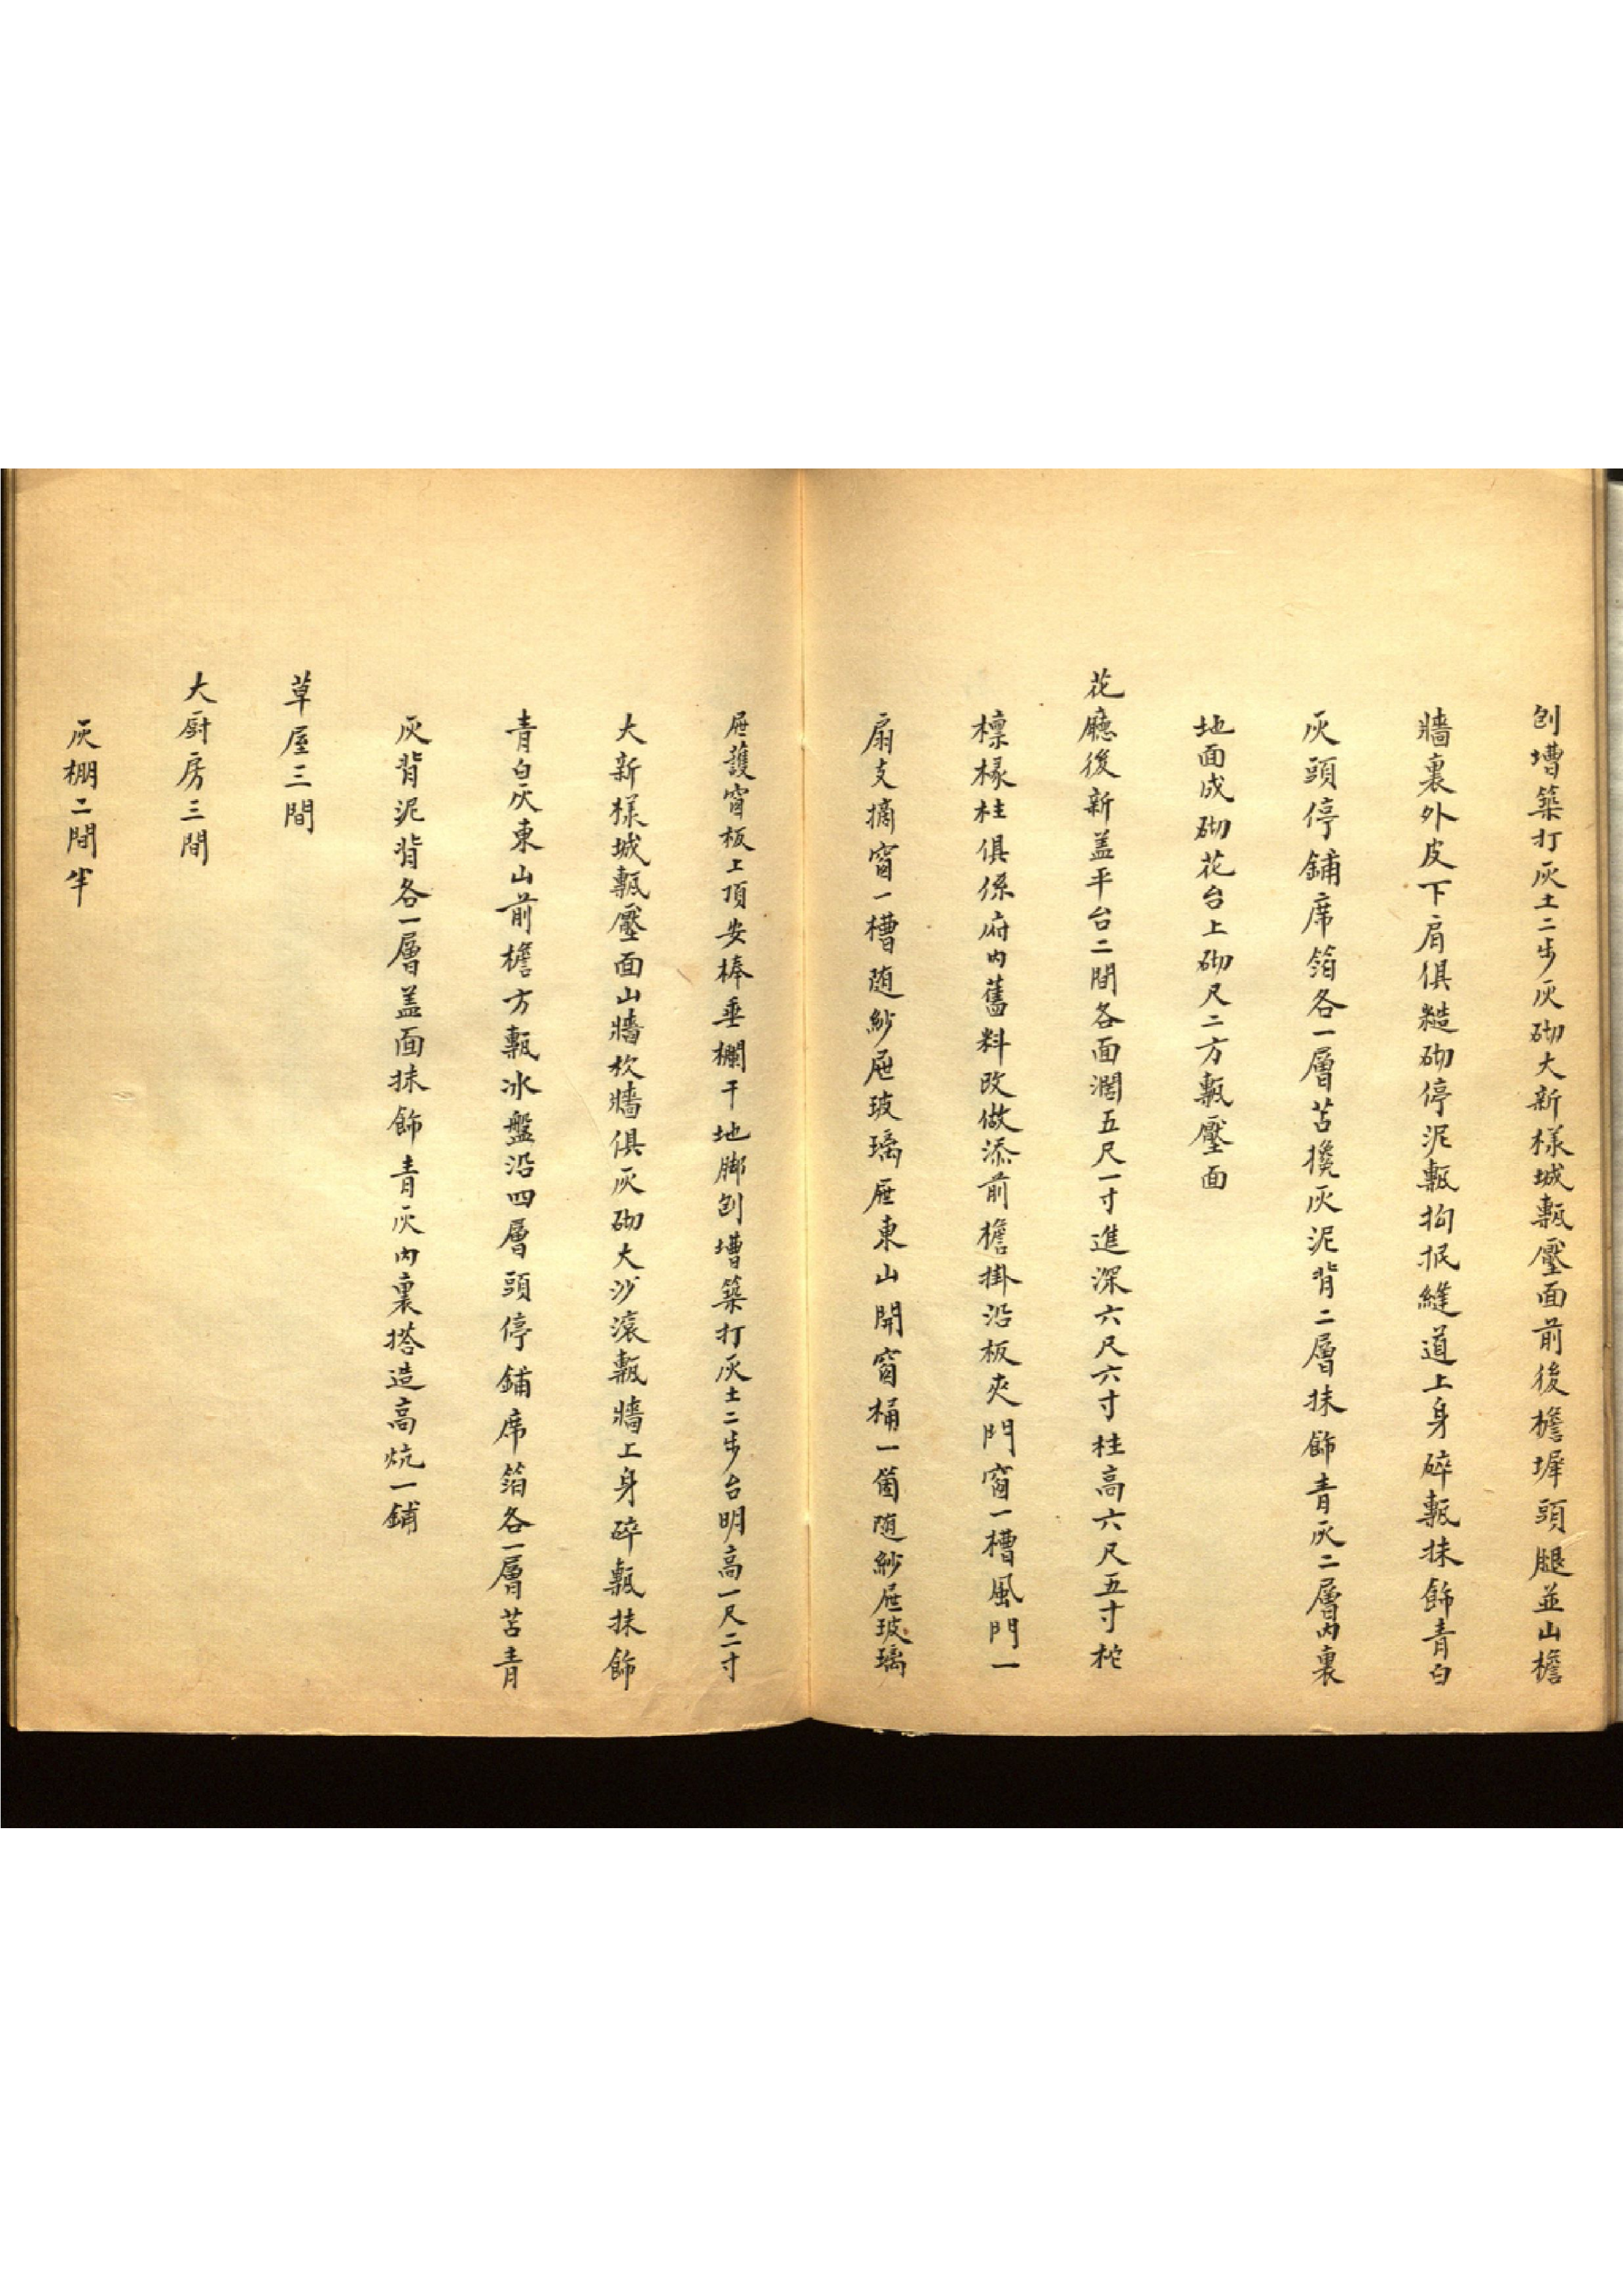 刨墁築打灰土二步灰砌大新樣城甎壓面前後檐墀頭腿並山檐
牆裏外皮下肩俱糙砌停泥甎拘抿縫道上身碎甎抹飾青白
灰頭停鋪席箔各一層苫攙灰泥背二層抹飾青灰二層內裏
地面成砌花台上砌尺二方甎壓面
花廳後新盖平台二間各面濶五尺一寸進深六尺六寸柱高六尺五寸柁
檩椽柱俱係府內舊料改做添前檐掛沿板夾門窗一槽風門一
扇支摘窗一槽随紗屜玻璃屜東山開窗桶一箇随紗屜玻璃
屜護窗板上頂安棒垂欄干地脚刨墁築打灰土二步台明高一尺二寸
大新樣城甎壓面山牆坎牆俱灰砌大沙滚甎牆上身碎甎抹飾
青白灰東山前檐方甎冰盤沿四層頭停鋪席箔各一層苫青
灰背泥背各一層盖面抹飾青灰內裏搭造高炕一鋪
草屋三間
大厨房三間
灰棚二間半